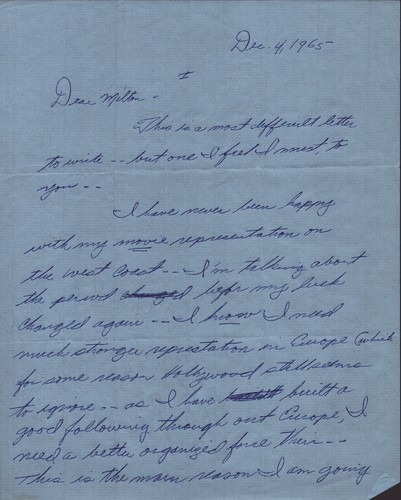 Dec. 4, 1965
I
Dear Milton -
This is a most difficult letter
to write -- but one I feel I must, to
you --
I have never been happy
with my movie representation on
the west Coast -- I'm talking about
the period befor my luck
changed again -- I know I need
much stronger represtation in Europe (which
for some reason Hollywood still seems
to ignore -- as I have built a
good following through out Europe, I
need a better organized force their --
This is the main reason I am going